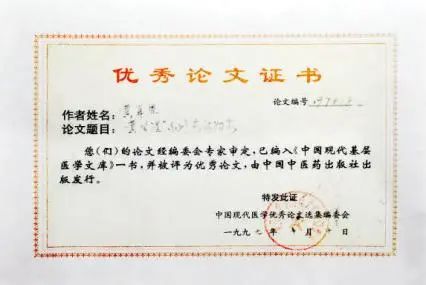 优秀论文证书
论文编号
作者姓名:
论文题目:
您(们)的论文经编委会专家审定,已编入《中国现代基层
医学文库》一书,并被评为优秀论文,由中国中医药出版社出
版发行。
特发此证
中国现代医学优秀论文选集编委会
一九九 年 月 日